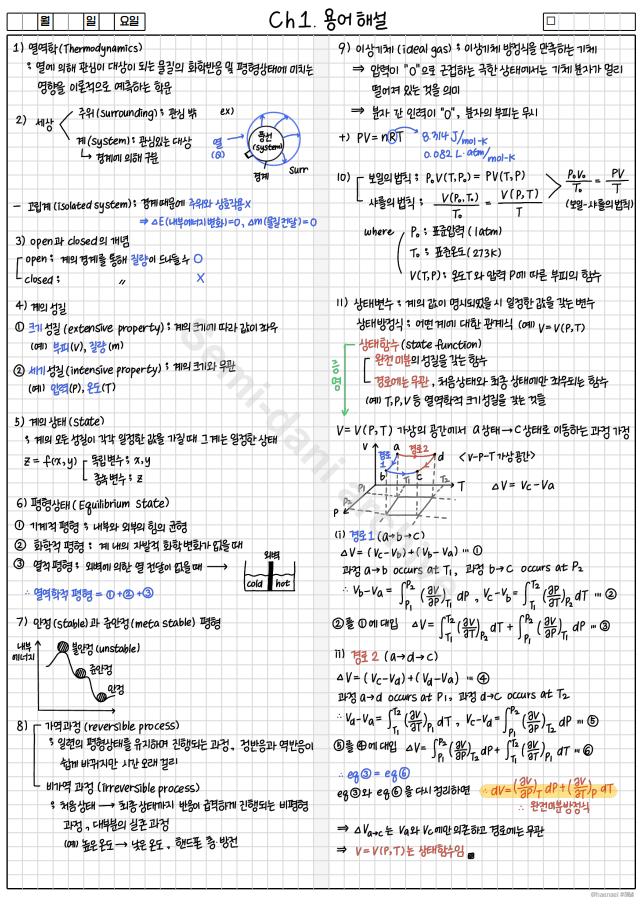 월 일 요일
Ch1. 용어 해설
1) 열역학(Thermodynamics)
: 열에 의해 관심이 대상이 되는 물질의 화학반응 및 평형상태에 미치는
영향을 이론적으로 예측하는 학문
2) 세상
주위(surrounding) : 관심 밖
계(system) : 관심있는 대상
↳ 경계에 의해 구분
ex)
열
(Q)
풍선
(system)
경계
Surr
- 고립계(isolated system) : 경계 때문에 주위와 상호작용 X
⇒ ΔE(내부에너지 변화)=0, Δm(물질전달)=0
3) open과 closed의 개념
open : 계의 경계를 통해 질량이 드나들 수 O
closed : 〃 X
4) 계의 성질
① 크기 성질(extensive property) : 계의 크기에 따라 값이 좌우
(예) 부피(V), 질량(m)
② 세기 성질(intensive property) : 계의 크기와 무관
(예) 압력(P), 온도(T)
5) 계의 상태(state)
: 계의 모든 성질이 각각 일정한 값을 가질 때 그 계는 일정한 상태
z = f(x,y)
독립변수 : x,y
종속변수 : z
6) 평형상태(Equilibrium state)
① 기계적 평형 : 내부와 외부의 힘의 균형
② 화학적 평형 : 계 내의 자발적 화학변화가 없을 때
③ 열적 평형 : 외벽에 의한 열 전달이 없을 때 →
외벽
cold hot
∴ 열역학적 평형 = ①+②+③
7) 안정(stable)과 준안정(meta stable) 평형
내부
에너지
불안정(unstable)
준안정
안정
8) 가역과정(reversible process)
: 일련의 평형상태를 유지하며 진행되는 과정, 정반응과 역반응이
쉽게 바뀌지만 시간 오래 걸리
비가역 과정(irreversible process)
: 처음상태 → 최종상태까지 반응이 급격하게 진행되는 비평형
과정, 대부분의 실존 과정
(예) 높은 온도 → 낮은 온도, 핸드폰 충·방전
9) 이상기체(ideal gas) : 이상기체 방정식을 만족하는 기체
⇒ 압력이 "0"으로 근접하는 극한 상태에서는 기체 분자가 멀리
떨어져 있는 것을 의미
⇒ 분자 간 인력이 "0", 분자의 부피는 무시
+) PV = nRT
8.314 J/mol-K
0.082 L·atm/mol-K
10) 보일의 법칙 : P₀V(T,P₀) = PV(T,P)
샤를의 법칙 : V(P₀,T₀)/T₀ = V(P,T)/T
P₀V₀/T₀ = PV/T
(보일-샤를의 법칙)
where P₀ : 표준압력(1atm)
T₀ : 표준온도(273K)
V(T,P) : 온도 T와 압력 P에 따른 부피의 함수
11) 상태변수 : 계의 값이 명시되었을 시 일정한 값을 갖는 변수
상태방정식 : 어떤 계에 대한 관계식 (예) V = V(P,T)
상태함수(state function)
완전 미분의 성질을 갖는 함수
경로에는 무관, 처음상태와 최종 상태에만 좌우되는 함수
(예) T,P,V 등 열역학적 크기성질을 갖는 것들
V = V(P,T) 가상의 공간에서 a상태 → c상태로 이동하는 과정 가정
V a 경로2 d
경로
1
b c
P₁ T₁ T₂
P₂
P T
<V-P-T 가상공간>
ΔV = Vc-Va
(i) 경로1 (a→b→c)
ΔV = (Vc-Vb)+(Vb-Va) … ①
과정 a→b occurs at T₁, 과정 b→c occurs at P₂
∴ Vb-Va = ∫P₁^P₂ (∂V/∂P)T₁ dP, Vc-Vb = ∫T₁^T₂ (∂V/∂T)P₂ dT … ②
②를 ①에 대입 ΔV = ∫T₁^T₂ (∂V/∂T)P₂ dT + ∫P₁^P₂ (∂V/∂P)T₁ dP … ③
ii) 경로2 (a→d→c)
ΔV = (Vc-Vd)+(Vd-Va) … ④
과정 a→d occurs at P₁, 과정 d→c occurs at T₂
∴ Vd-Va = ∫T₁^T₂ (∂V/∂T)P₁ dT, Vc-Vd = ∫P₁^P₂ (∂V/∂P)T₂ dP … ⑤
⑤를 ④에 대입 ΔV = ∫P₁^P₂ (∂V/∂P)T₂ dP + ∫T₁^T₂ (∂V/∂T)P₁ dT … ⑥
∴ eq③ = eq⑥
eq③와 eq⑥을 다시 정리하면 ∴ dV = (∂V/∂P)T dP + (∂V/∂T)P dT
∴ 완전미분방정식
⇒ ΔVa→c는 Va와 Vc에만 의존하고 경로에는 무관
⇒ V = V(P,T)는 상태함수임